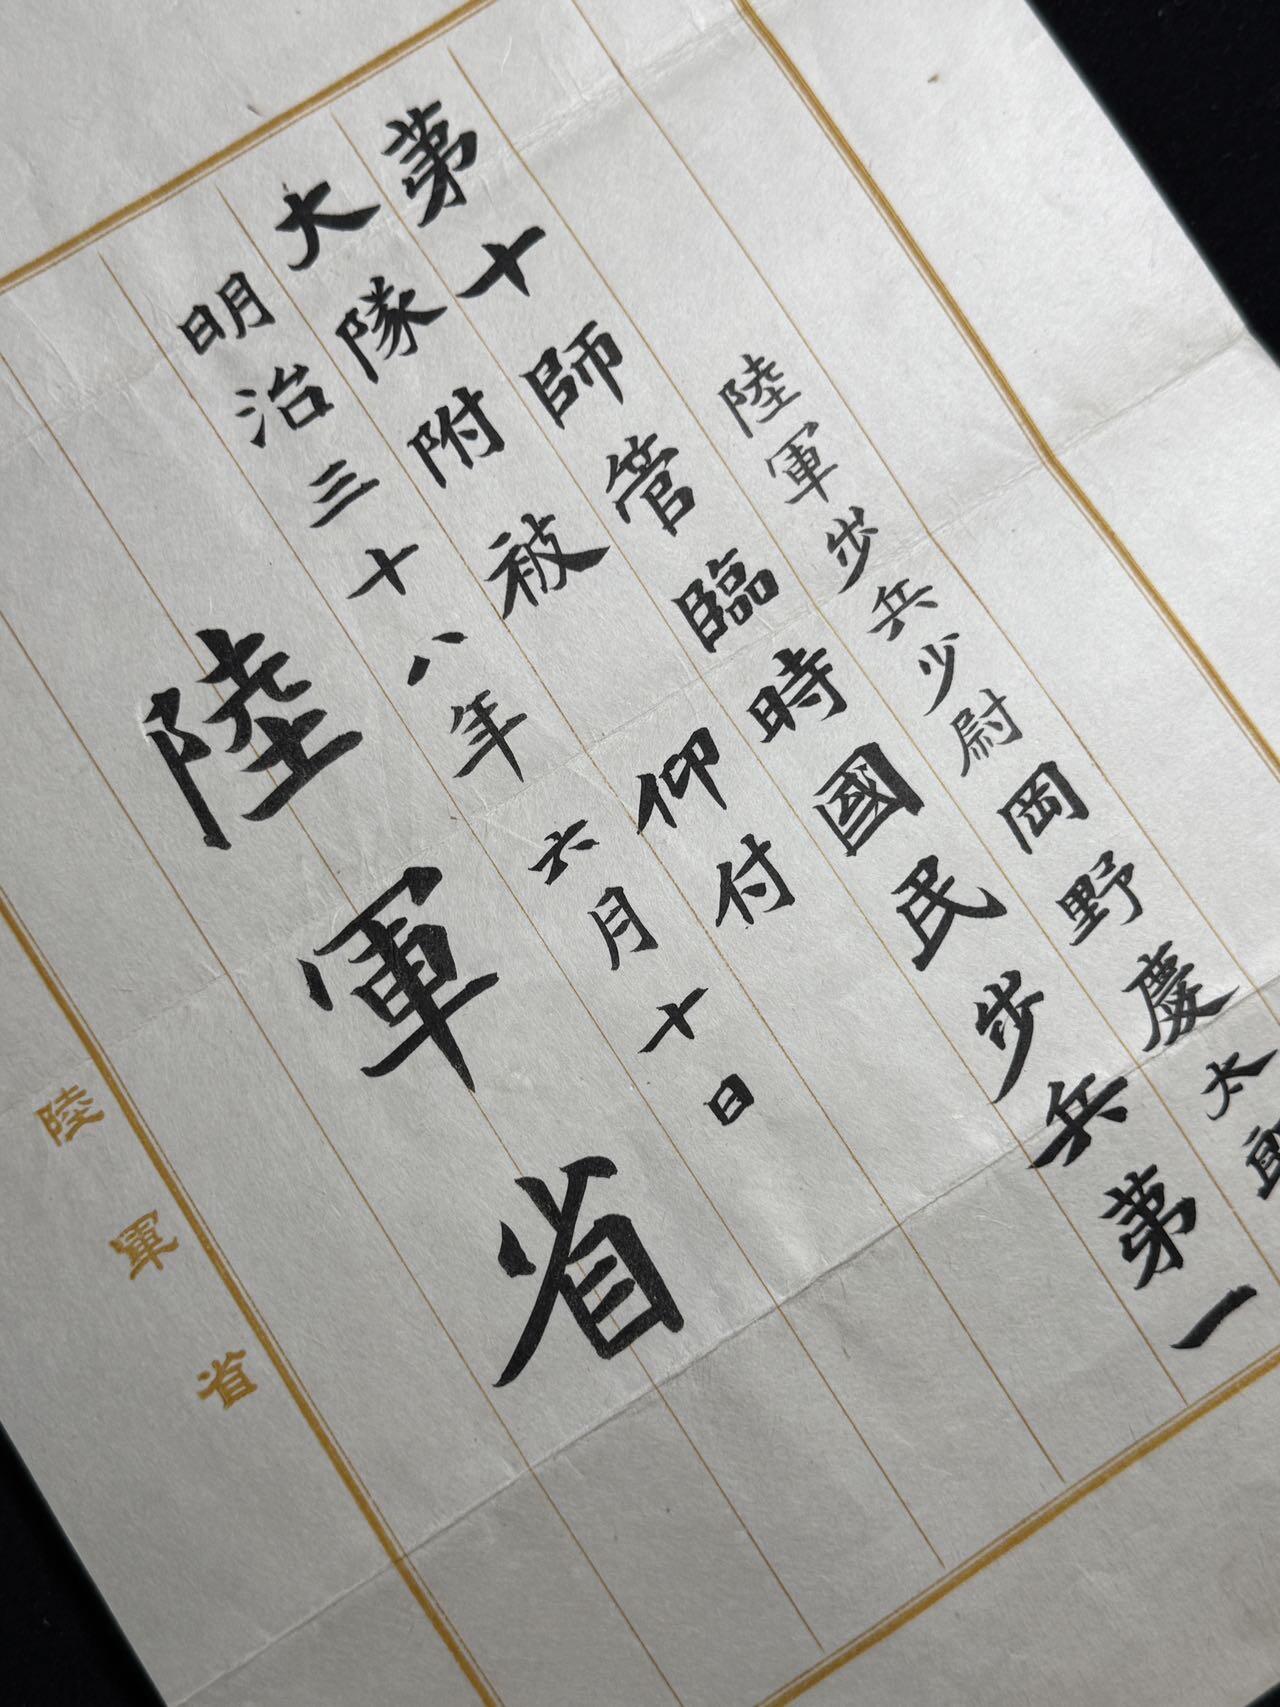 陸軍歩兵少尉岡野慶太郎
第十師管臨時國民歩兵第一
大隊附被仰付
明治三十八年六月十日
陸軍省
陸軍省